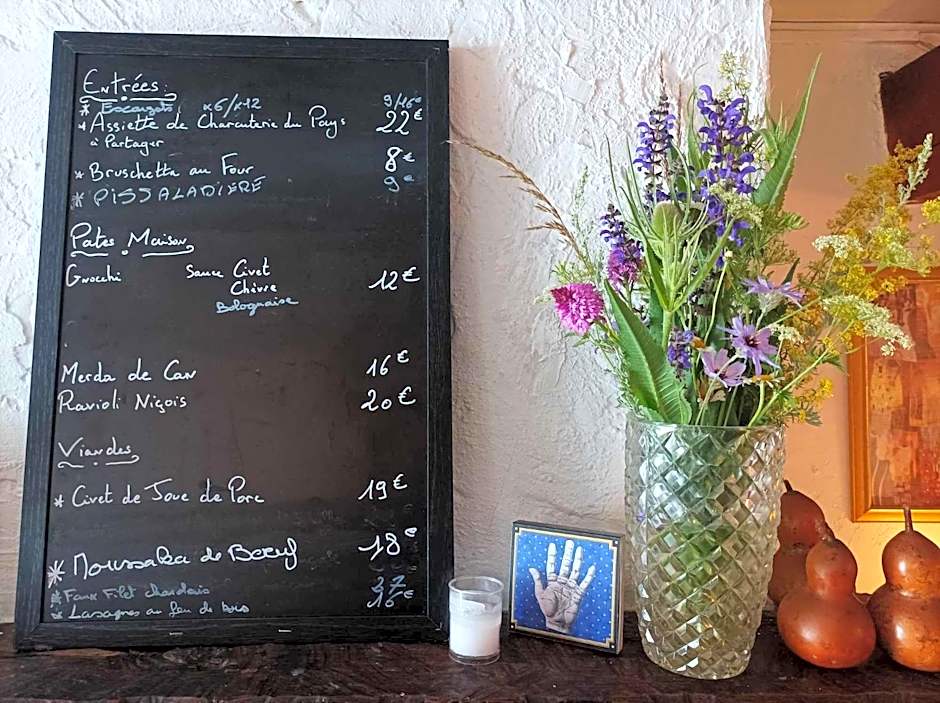 Entrées:
* Escargots x6/x12 9/16€
* Assiette de Charcuterie du Pays 22€
à Partager
* Bruschetta au Four 8€
* PISSALADIÈRE 9€
Pates Maison
Gnocchi Sauce Civet 12€
Chèvre
Bolognaise
Merda de Can 16€
Ravioli Niçois 20€
Viandes
* Civet de Joue de Porc 19€
* Moussaka de Bœuf 18€
* Faux Filet charolais 27
* Lasagnes au feu de bois 16€